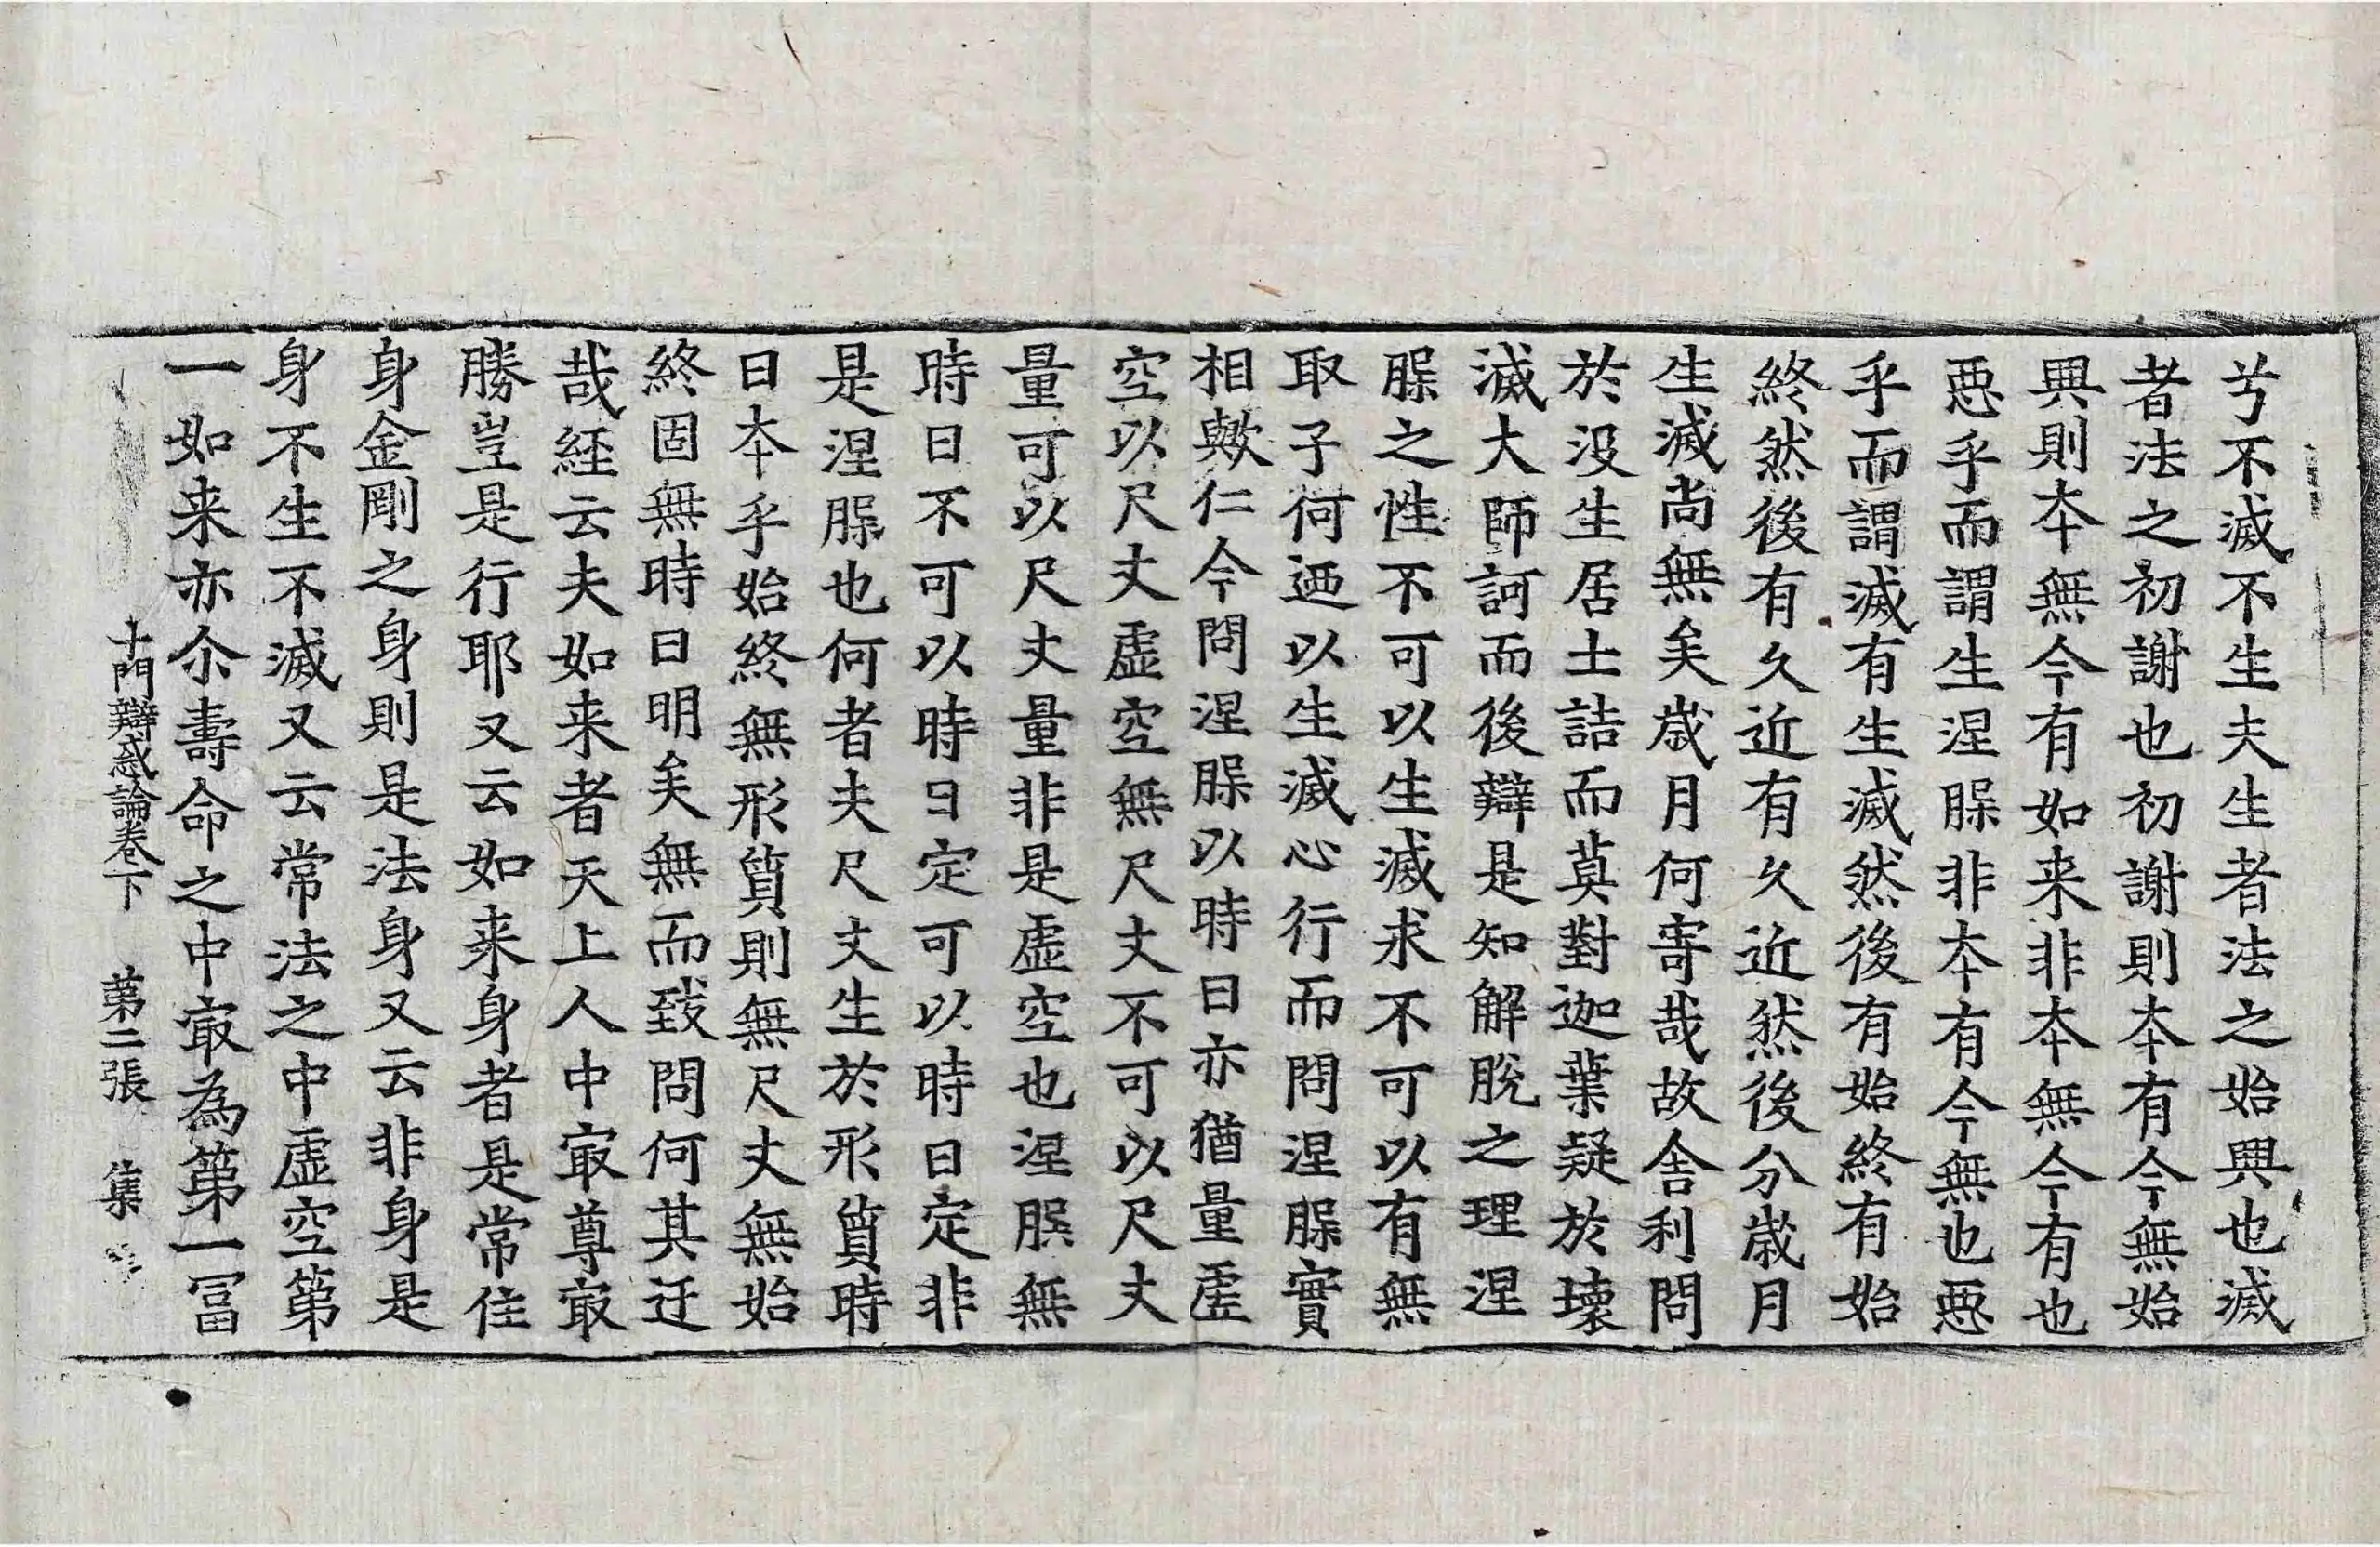 兮不滅不生夫生者法之始興也滅
者法之初謝也初謝則本有今無始
興則本無今有如来非本無今有也
惡乎而謂生涅槃非本有今無也惡
乎而謂滅有生滅然後有始終有始
終然後有久近有久近然後分歲月
生滅尚無矣歲月何寄哉故舎利問
於没生居士詰而莫對迦葉疑於壞
滅大師訶而後辯是知解脫之理涅
槃之性不可以生滅求不可以有無
取子何迺以生滅心行而問涅槃實
相歟仁今問涅槃以時日亦猶量虛
空以尺丈虛空無尺丈不可以尺丈
量可以尺丈量非是虛空也涅槃無
時日不可以時日定可以時日定非
是涅槃也何者夫尺丈生於形質時
日本乎始終無形質則無尺丈無始
終固無時日明矣無而致問何其迂
哉経云夫如来者天上人中㝡尊㝡
勝豈是行耶又云如来身者是常住
身金剛之身則是法身又云非身是
身不生不滅又云常法之中虛空第
一如来亦尒壽命之中㝡為第一冨
十門辯惑論卷下　第二張　集